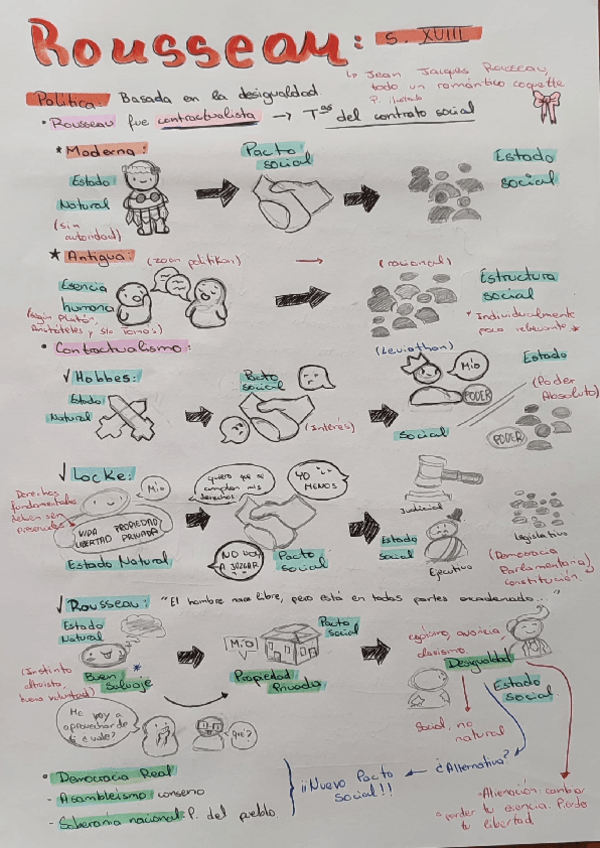 Rousseau: s. XVIII
↳ Jean Jacques Rousseau,
todo un romántico coquette
P. ilustrado
Política: Basada en la desigualdad
• Rousseau fue contractualista → Tªs del contrato social
* Moderna:
Estado
Natural
(sin
autoridad)
Pacto
social
Estado
social
* Antigua: (zoon politikon) → (racional)
Esencia
humana
(según Platón,
Aristóteles y Sto Tomás)
Estructura
social
* Individualmente
poco relevante *
• Contractualismo:
✓ Hobbes:
Estado
Natural
Pacto
social
(Interés)
(Leviathan)
Mío
PODER
Social
Estado
(Poder
Absoluto)
PODER
✓ Locke:
Derechos
fundamentales
deben ser
Mío
VIDA PROPIEDAD
LIBERTAD PRIVADA
Estado Natural
quiero que se
cumplan mis
derechos
YO
MENOS
NO VOY
A JUZGAR
Pacto
social
Judicial
Estado
social
Ejecutivo
Legislativo
(Democracia
Parlamentaria y
constitución.)
✓ Rousseau: "El hombre nace libre, pero está en todas partes encadenado..."
Estado
Natural
(Instinto
altruista,
buena voluntad)
Buen
Salvaje
*
Mío
Pacto
social
Propiedad
Privada
egoísmo, avaricia,
clasismo.
Desigualdad
Estado
Social
Me voy a
aprovechar de
ti ¿vale?
¿qué?
Social, no
natural
• Democracia Real
- Asambleísmo: consenso
- Soberanía nacional: P. del pueblo.
¡¡Nuevo Pacto
Social!!
¿Alternativa?
Alienación: cambiar
o perder tu esencia. Pierdo
tu libertad